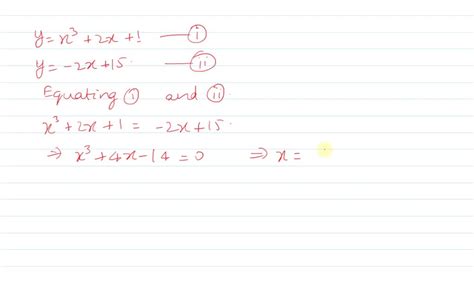 y = x³ + 2x + 1 — ⓘ
y = -2x + 15. — ⓘⓘ
Equating ⓘ and ⓘⓘ.
x³ + 2x + 1 = -2x + 15.
⇒ x³ + 4x - 14 = 0 ⇒ x =